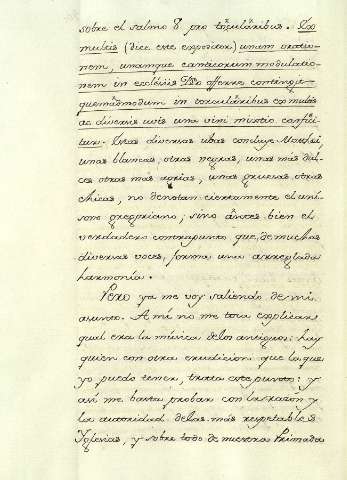 sobre el salmo 8 pro torculáribus. Ex
multis (dice este expositor) unam oratio-
nem, unamque canticorum modulatio-
nem in ecclesiis Deo offerre contingit
quemadmodum in torculáribus ex multis
ac diversis uvis una vini mixtio conflá-
tur. Estas diversas ubas concluye
unas blancas, otras negras, unas mas dul-
ces otras mas agrias, unas gruesas otras
chicas, no denotan ciertamente el uni-
sono gregoriano; sino ántes bien el
verdadero contrapunto que de muchas
diversas voces, forma una arreglada
harmonía.
Pero ya me voy saliendo de mi
asunto. A mí no me toca explicar
qual era la música delos antiguos: hay
quien con otra erudicion que la que
yo puedo tener, trata este punto: y
así me basta probar con la razón y
la autoridad delas más respetables
Yglesias, y sobre todo de nuestra Primada